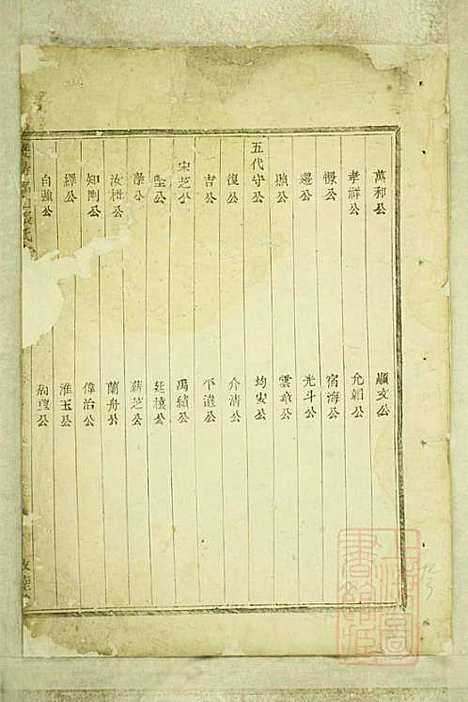 萬和公 顯文公
孝祥公 允韜公
徽公 宿海公
遷公 光斗公
強公 雲章公
五代守公 均安公
復公 介清公
吉公 不遠公
宋芝公 禹績公
聖公 廷棟公
藻公 蔣芝公
汝楫公 蘭舟公
知剛公 偉治公
繹公 淮玉公
自強公